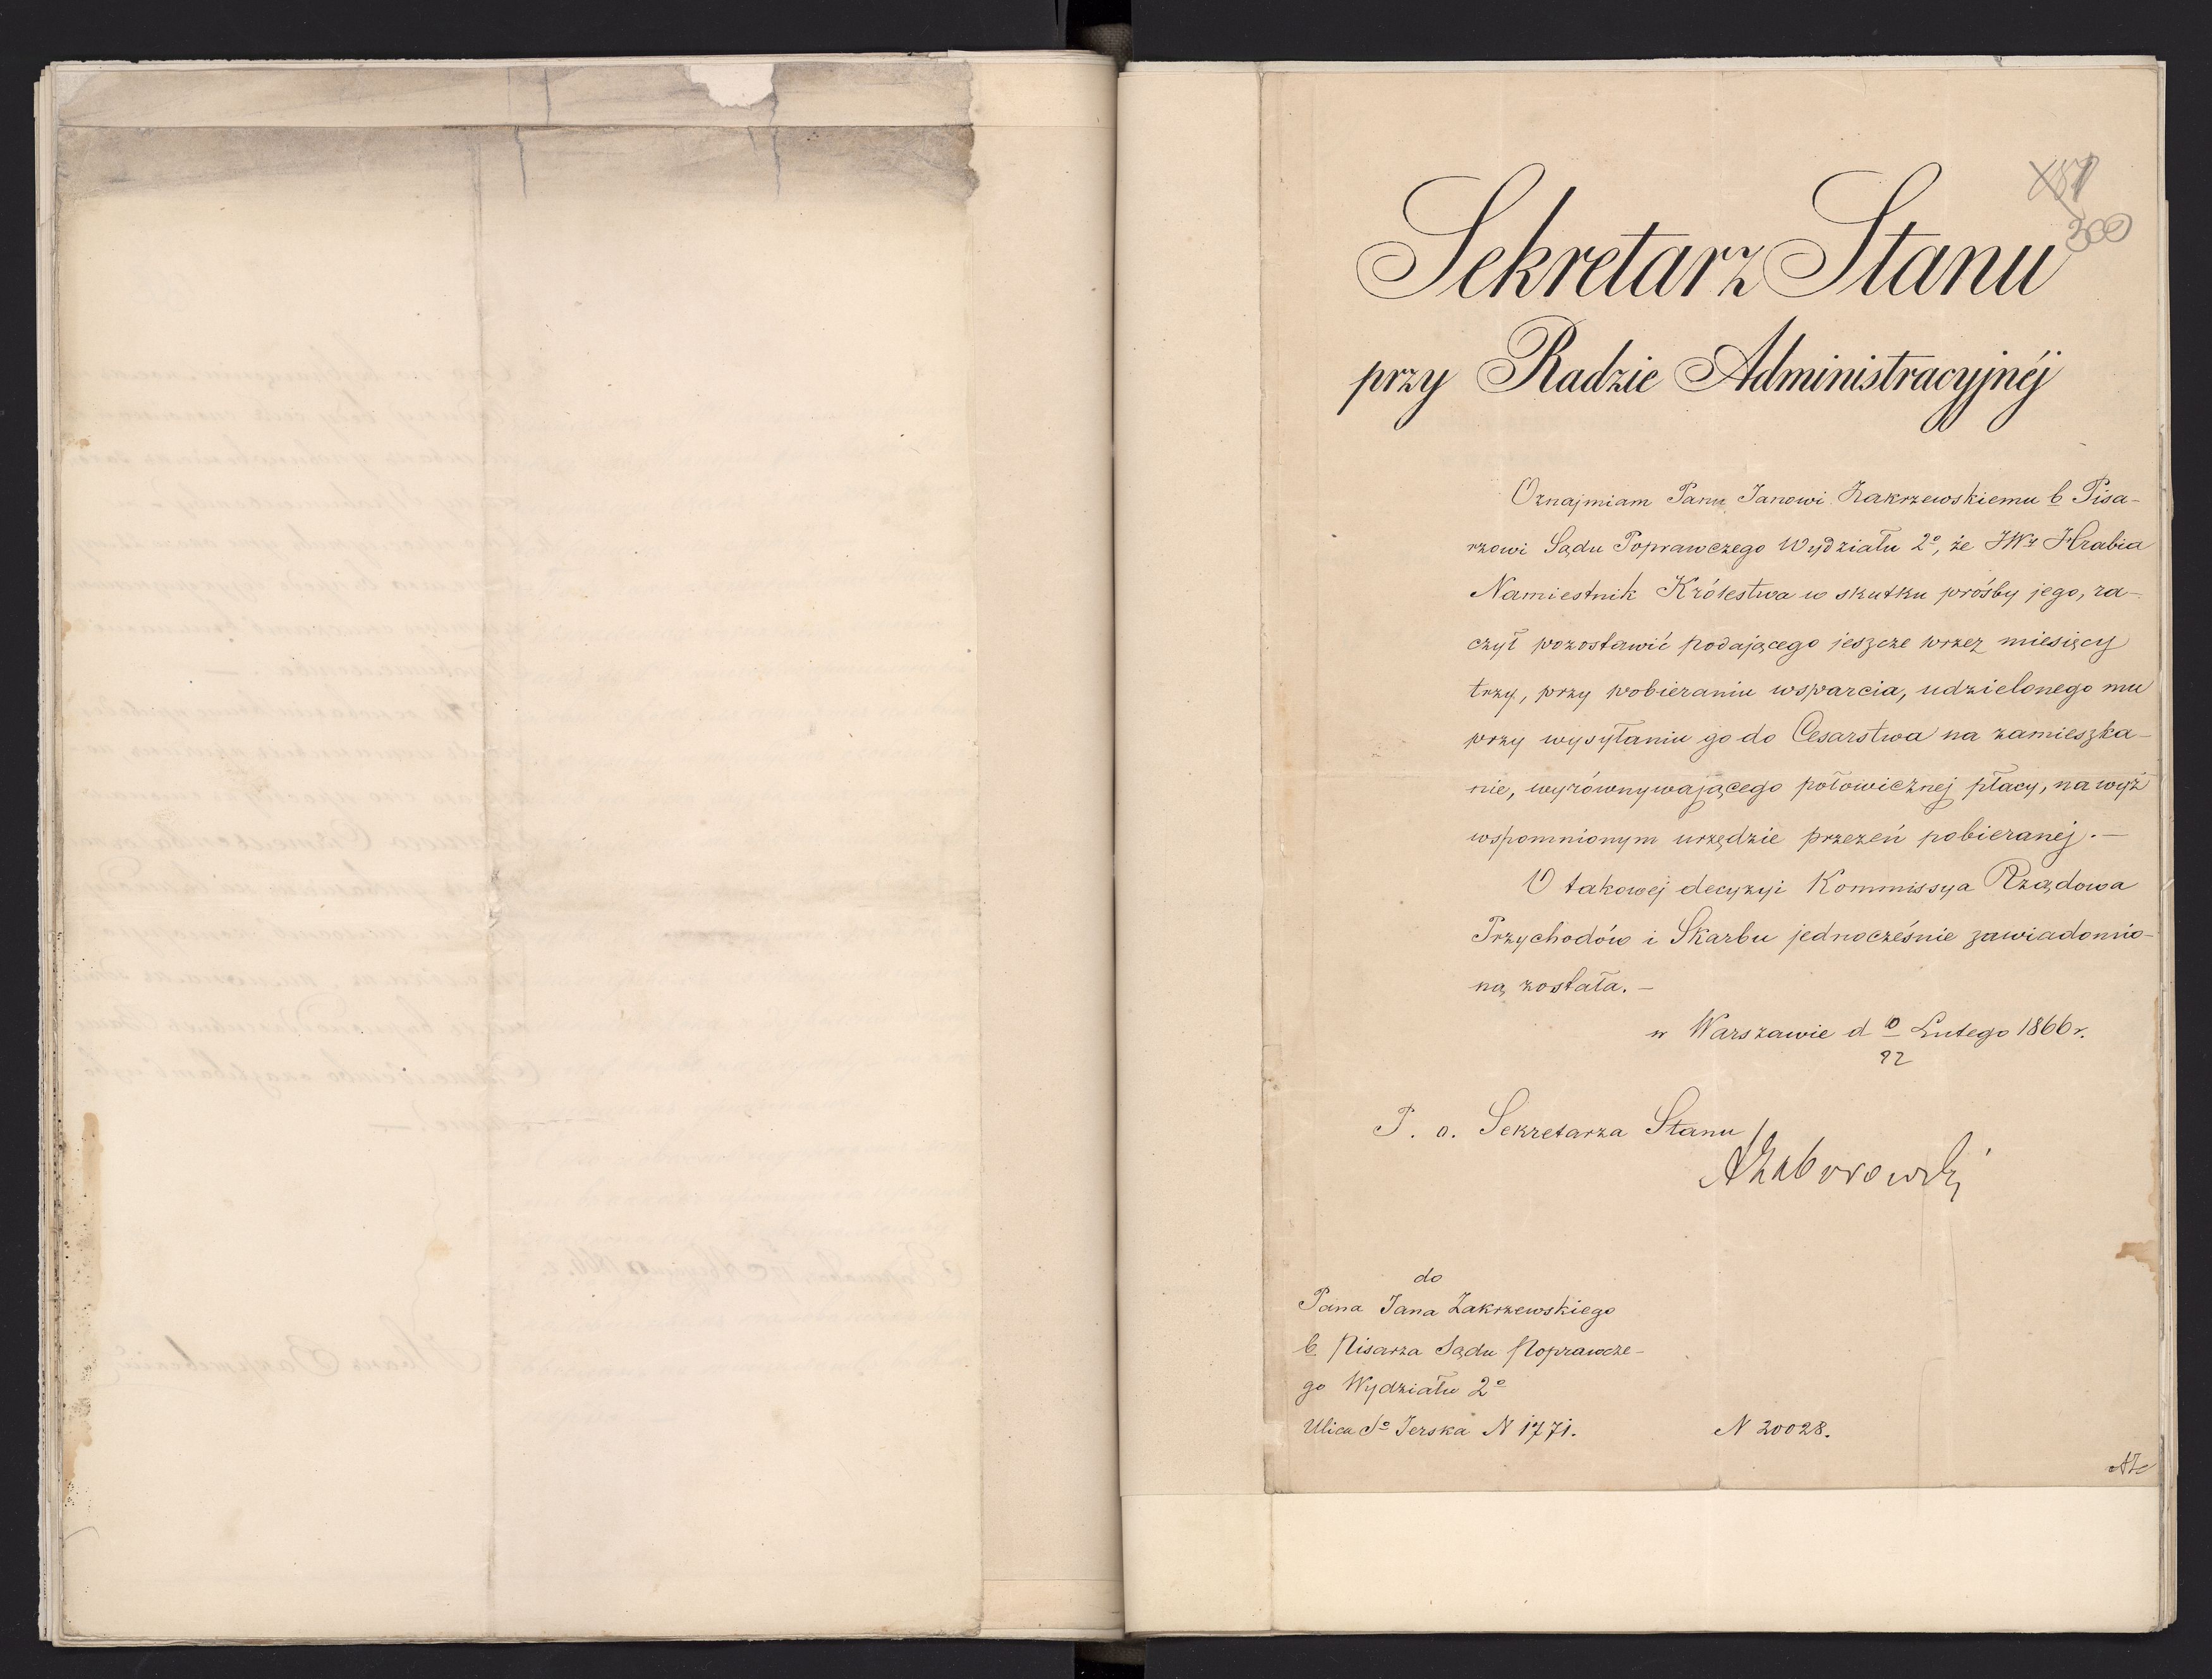 300
Sekretarz Stanu
przy Radzie Administracyjnéj
Oznajmiam Panu Janowi Zakrzewskiemu b Pisa-
rzowi Sądu Poprawczego Wydziału 2º, że JWy Hrabia
Namiestnik Królestwa w skutku prośby jego, ra-
czył pozostawić podającego jeszcze przez miesięcy
trzy, przy pobieraniu wsparcia, udzielonego mu
przy wysyłaniu go do Cesarstwa na zamieszka-
nie, wyrównywającego połowicznej płacy, na wyż
wspomnionym urzędzie przezeń pobieranej. —
O takowej decyzyi Kommissya Rządowa
Przychodów i Skarbu jednocześnie zawiadomio-
ną została. —
w Warszawie d 10 Lutego 1866 r.
22
P. o. Sekretarza Stanu
AZaborowski
do
Pana Jana Zakrzewskiego
b Pisarza Sądu Poprawcze-
go Wydziału 2º
Ulica Sº Jerska N 1771.
N 20028.